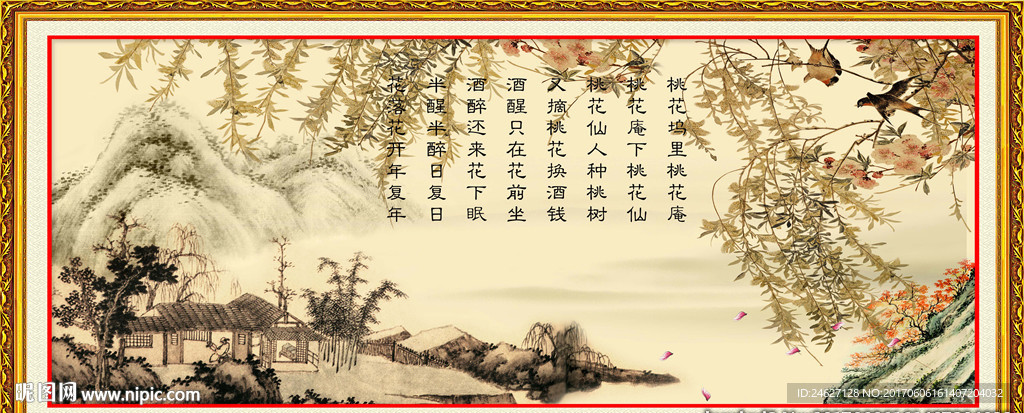 桃花坞里桃花庵
桃花庵下桃花仙
桃花仙人种桃树
又摘桃花换酒钱
酒醒只在花前坐
酒醉还来花下眠
半醒半醉日复日
花落花开年复年
昵图网 www.nipic.com
ID:24627128 NO:20170606161407204032